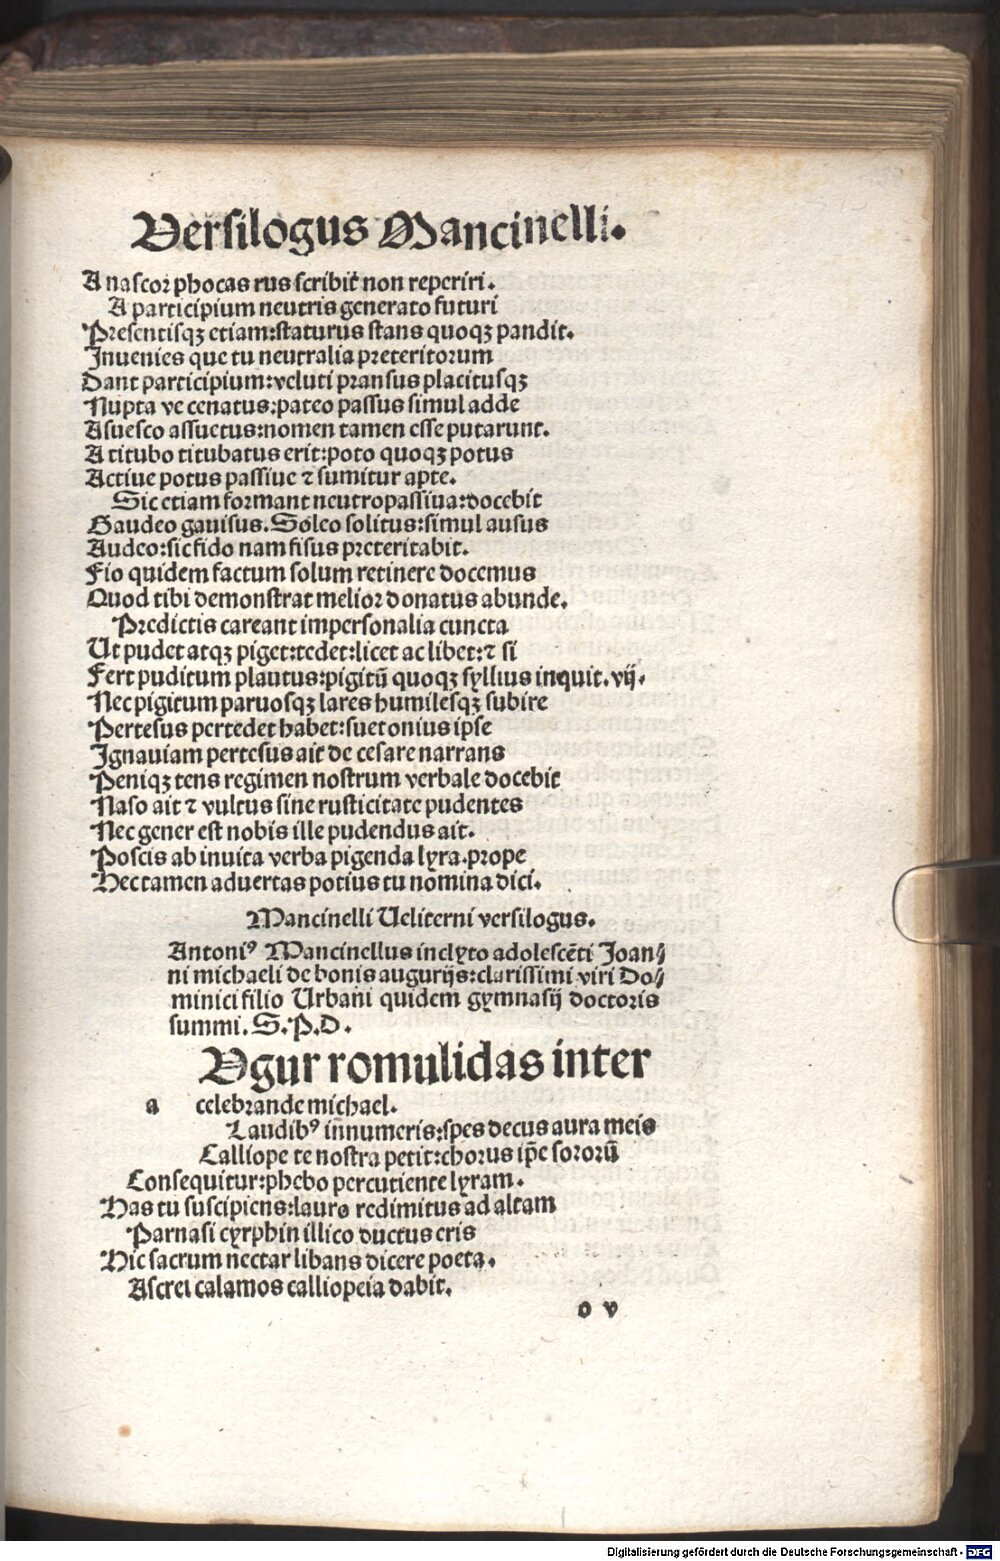 Versilogus Mancinelli.
A nascor phocas rus scribit non reperiri.
A participium neutris generato futuri
Presentisqꝫ etiam:staturus stans quoqꝫ pandit.
Inuenies que tu neutralia preteritorum
Dant participium:veluti pransus placitusqꝫ
Nupta ve cenatus:pateo passus simul adde
Asuesco assuetus:nomen tamen esse putarunt.
A titubo titubatus erit:poto quoqꝫ potus
Actiue potus passiue ⁊ sumitur apte.
Sic etiam formant neutropassiua:docebit
Gaudeo gauisus. Soleo solitus:simul ausus
Audeo:sic fido nam fisus preteritabit.
Fio quidem factum solum retinere docemus
Quod tibi demonstrat melior donatus abunde.
Predictis careant impersonalia cuncta
Ut pudet atqꝫ piget:tedet:licet ac libet:⁊ si
Fert puditum plautus:pigitū quoqꝫ syllius inquit.vij.
Nec pigitum paruosqꝫ lares humilesqꝫ subire
Pertesus pertedet habet:suetonius ipse
Ignauiam pertesus ait de cesare narrans
Peniqꝫ tens regimen nostrum verbale docebit
Naso ait ⁊ vultus sine rusticitate pudentes
Nec gener est nobis ille pudendus ait.
Poscis ab inuita verba pigenda lyra.prope
Hec tamen aduertas potius tu nomina dici.
Mancinelli Ueliterni versilogus.
Antoniꝰ Mancinellus inclyto adolescēti Joan⸗
ni michaeli de bonis augurijs:clarissimi viri Do⸗
minici filio Urbani quidem gymnasij doctoris
summi. S.P.D.
Ugur romulidas inter
a celebrande michael.
Laudibꝰ iñnumeris:spes decus aura meis
Calliope te nostra petit:chorus ip̄e sororū
Consequitur:phebo percutiente lyram.
Has tu suscipiens:lauro redimitus ad altam
Parnasi cyrphin illico ductus eris
Hic sacrum nectar libans dicere poeta.
Ascrei calamos calliopeia dabit.
o v
Digitalisierung gefördert durch die Deutsche Forschungsgemeinschaft - DFG